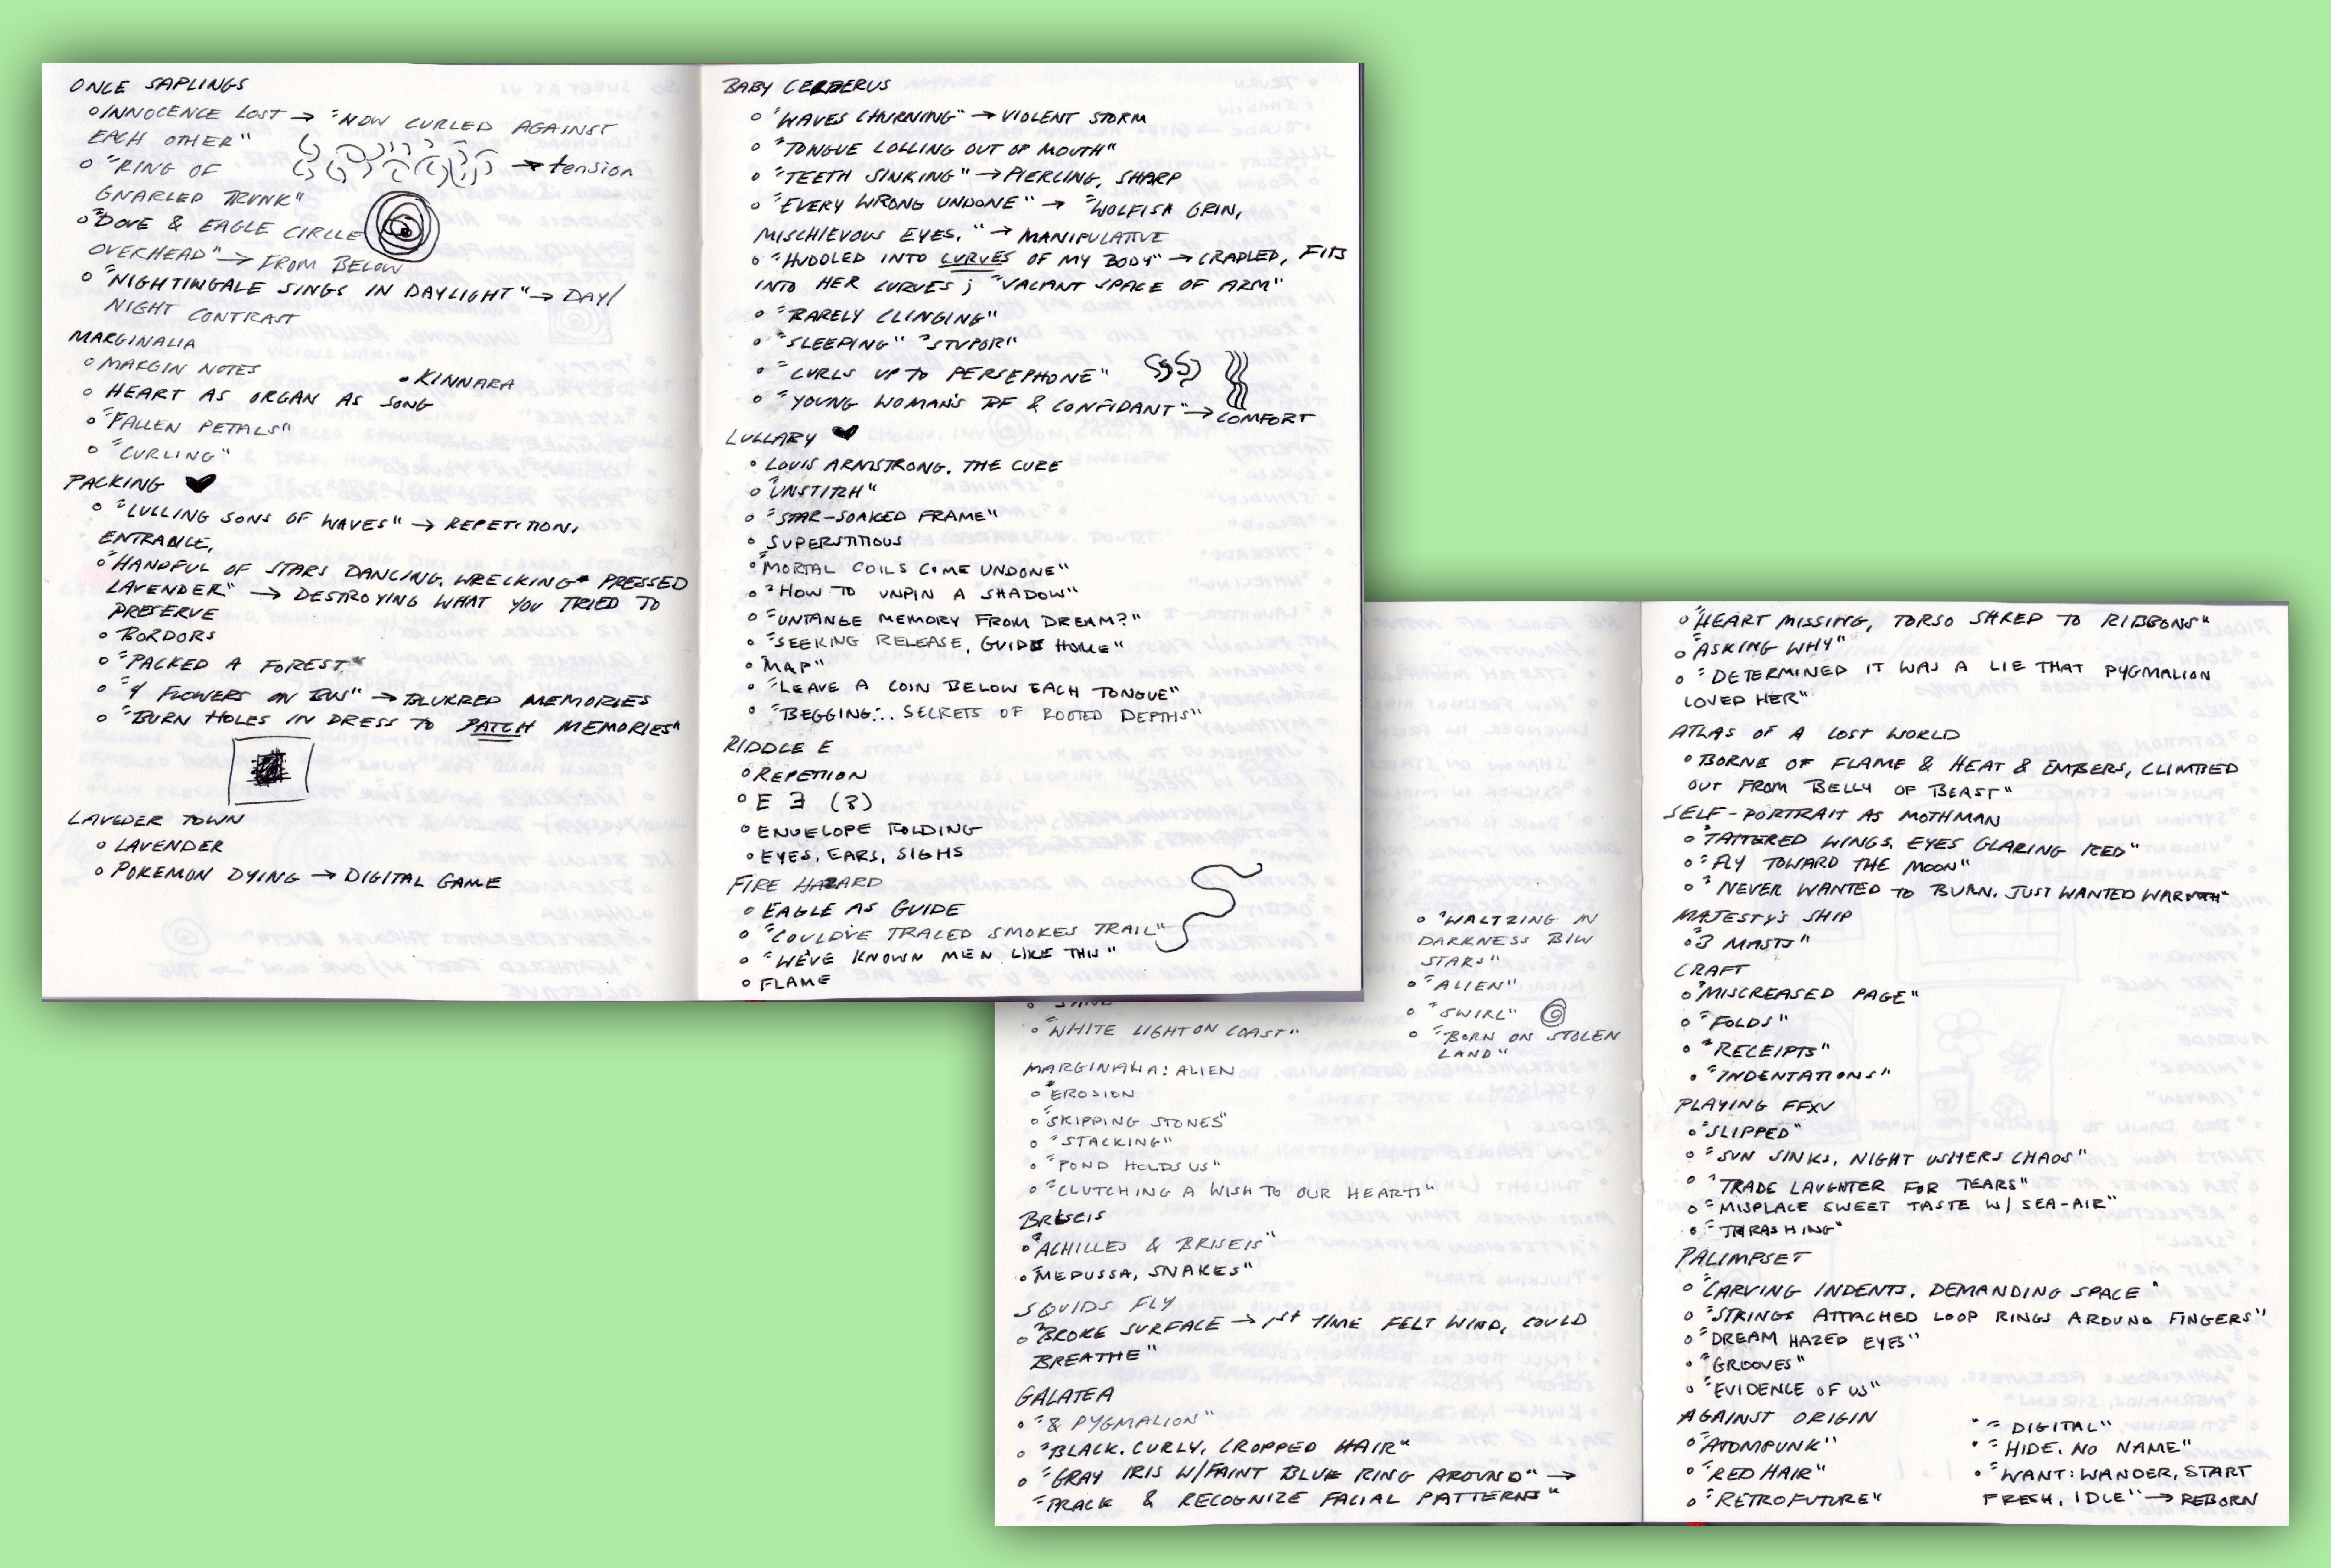 ONCE SAPLINGS
INNOCENCE LOST → "NOW CURLED AGAINST
EACH OTHER"
"RING OF
GNARLED TRUNK"
→ tension
"DOVE & EAGLE CIRCLE
OVERHEAD" → FROM BELOW
"NIGHTINGALE SINGS IN DAYLIGHT" → DAY/
NIGHT CONTRAST
MARGINALIA
MARGIN NOTES
KINNARA
HEART AS ORGAN AS SONG
"FALLEN PETALS"
"CURLING"
PACKING ♥
"LULLING SONS OF WAVES" → REPETITION,
ENTRANCE,
"HANDFUL OF STARS DANCING, WRECKING PRESSED
LAVENDER" → DESTROYING WHAT YOU TRIED TO
PRESERVE
BORDORS
"PACKED A FOREST"
"4 FLOWERS ON BUS" → BLURRED MEMORIES
"BURN HOLES IN DRESS TO PATCH MEMORIES"
LAVEDER TOWN
LAVENDER
POKEMON DYING → DIGITAL GAME
BABY CERBERUS
"WAVES CHURNING" → VIOLENT STORM
"TONGUE LOLLING OUT OF MOUTH"
"TEETH SINKING" → PIERCING, SHARP
"EVERY WRONG UNDONE" → "WOLFISH GRIN,
MISCHIEVOUS EYES." → MANIPULATIVE
"HUDDLED INTO CURVES OF MY BODY" → CRADLED, FITS
INTO HER CURVES; "VACANT SPACE OF ARM"
"BARELY CLINGING"
"SLEEPING" "STUPOR"
"CURLS UP TO PERSEPHONE"
"YOUNG WOMAN'S BF & CONFIDANT" → COMFORT
LULLABY ♥
LOUIS ARMSTRONG, THE CURE
"UNSTITCH"
"STAR-SOAKED FRAME"
SUPERSTITIOUS
"MORTAL COILS COME UNDONE"
"HOW TO UNPIN A SHADOW"
"UNTANGE MEMORY FROM DREAM?"
"SEEKING RELEASE, GUIDE HOME"
"MAP"
"LEAVE A COIN BELOW EACH TONGUE"
"BEGGING... SECRETS OF ROOTED DEPTHS"
RIDDLE E
REPETION
E Ǝ (3)
ENVELOPE FOLDING
EYES, EARS, SIGHS
FIRE HAZARD
EAGLE AS GUIDE
"COULD'VE TRACED SMOKES TRAIL"
"WE'VE KNOWN MEN LIKE THIS"
FLAME
"WHITE LIGHT ON COAST"
MARGINALIA: ALIEN
"EROSION
"SKIPPING STONES"
"STACKING"
"POND HOLDS US"
"CLUTCHING A WISH TO OUR HEARTS"
BRISEIS
"ACHILLES & BRISEIS"
"MEDUSSA, SNAKES"
SQUIDS FLY
"BROKE SURFACE → 1st TIME FELT WIND, COULD
BREATHE"
GALATEA
"& PYGMALION"
"BLACK, CURLY, CROPPED HAIR"
"GRAY IRIS W/FAINT BLUE RING AROUND" →
"TRACK & RECOGNIZE FACIAL PATTERNS"
"WALTZING IN
DARKNESS B/W
STARS"
"ALIEN"
"SWIRL"
"BORN ON STOLEN
LAND"
"HEART MISSING, TORSO SHRED TO RIBBONS"
"ASKING WHY"
"DETERMINED IT WAS A LIE THAT PYGMALION
LOVED HER"
ATLAS OF A LOST WORLD
"BORNE OF FLAME & HEAT & EMBERS, CLIMBED
OUT FROM BELLY OF BEAST"
SELF-PORTRAIT AS MOTHMAN
"TATTERED WINGS, EYES GLARING RED"
"FLY TOWARD THE MOON"
"NEVER WANTED TO BURN. JUST WANTED WARMTH"
MAJESTY'S SHIP
"3 MASTS"
CRAFT
"MISCREASED PAGE"
"FOLDS"
"RECEIPTS"
"INDENTATIONS"
PLAYING FFXV
"SLIPPED"
"SUN SINKS, NIGHT USHERS CHAOS"
"TRADE LAUGHTER FOR TEARS"
"MISPLACE SWEET TASTE W/ SEA-AIR"
"THRASHING"
PALIMPSET
"CARVING INDENTS, DEMANDING SPACE"
"STRINGS ATTACHED LOOP RINGS AROUND FINGERS"
"DREAM HAZED EYES"
"GROOVES"
"EVIDENCE OF US"
AGAINST ORIGIN
"ATOMPUNK"
"RED HAIR"
"RETROFUTURE"
"DIGITAL"
"HIDE, NO NAME"
"WANT: WANDER, START
FRESH, IDLE" → REBORN